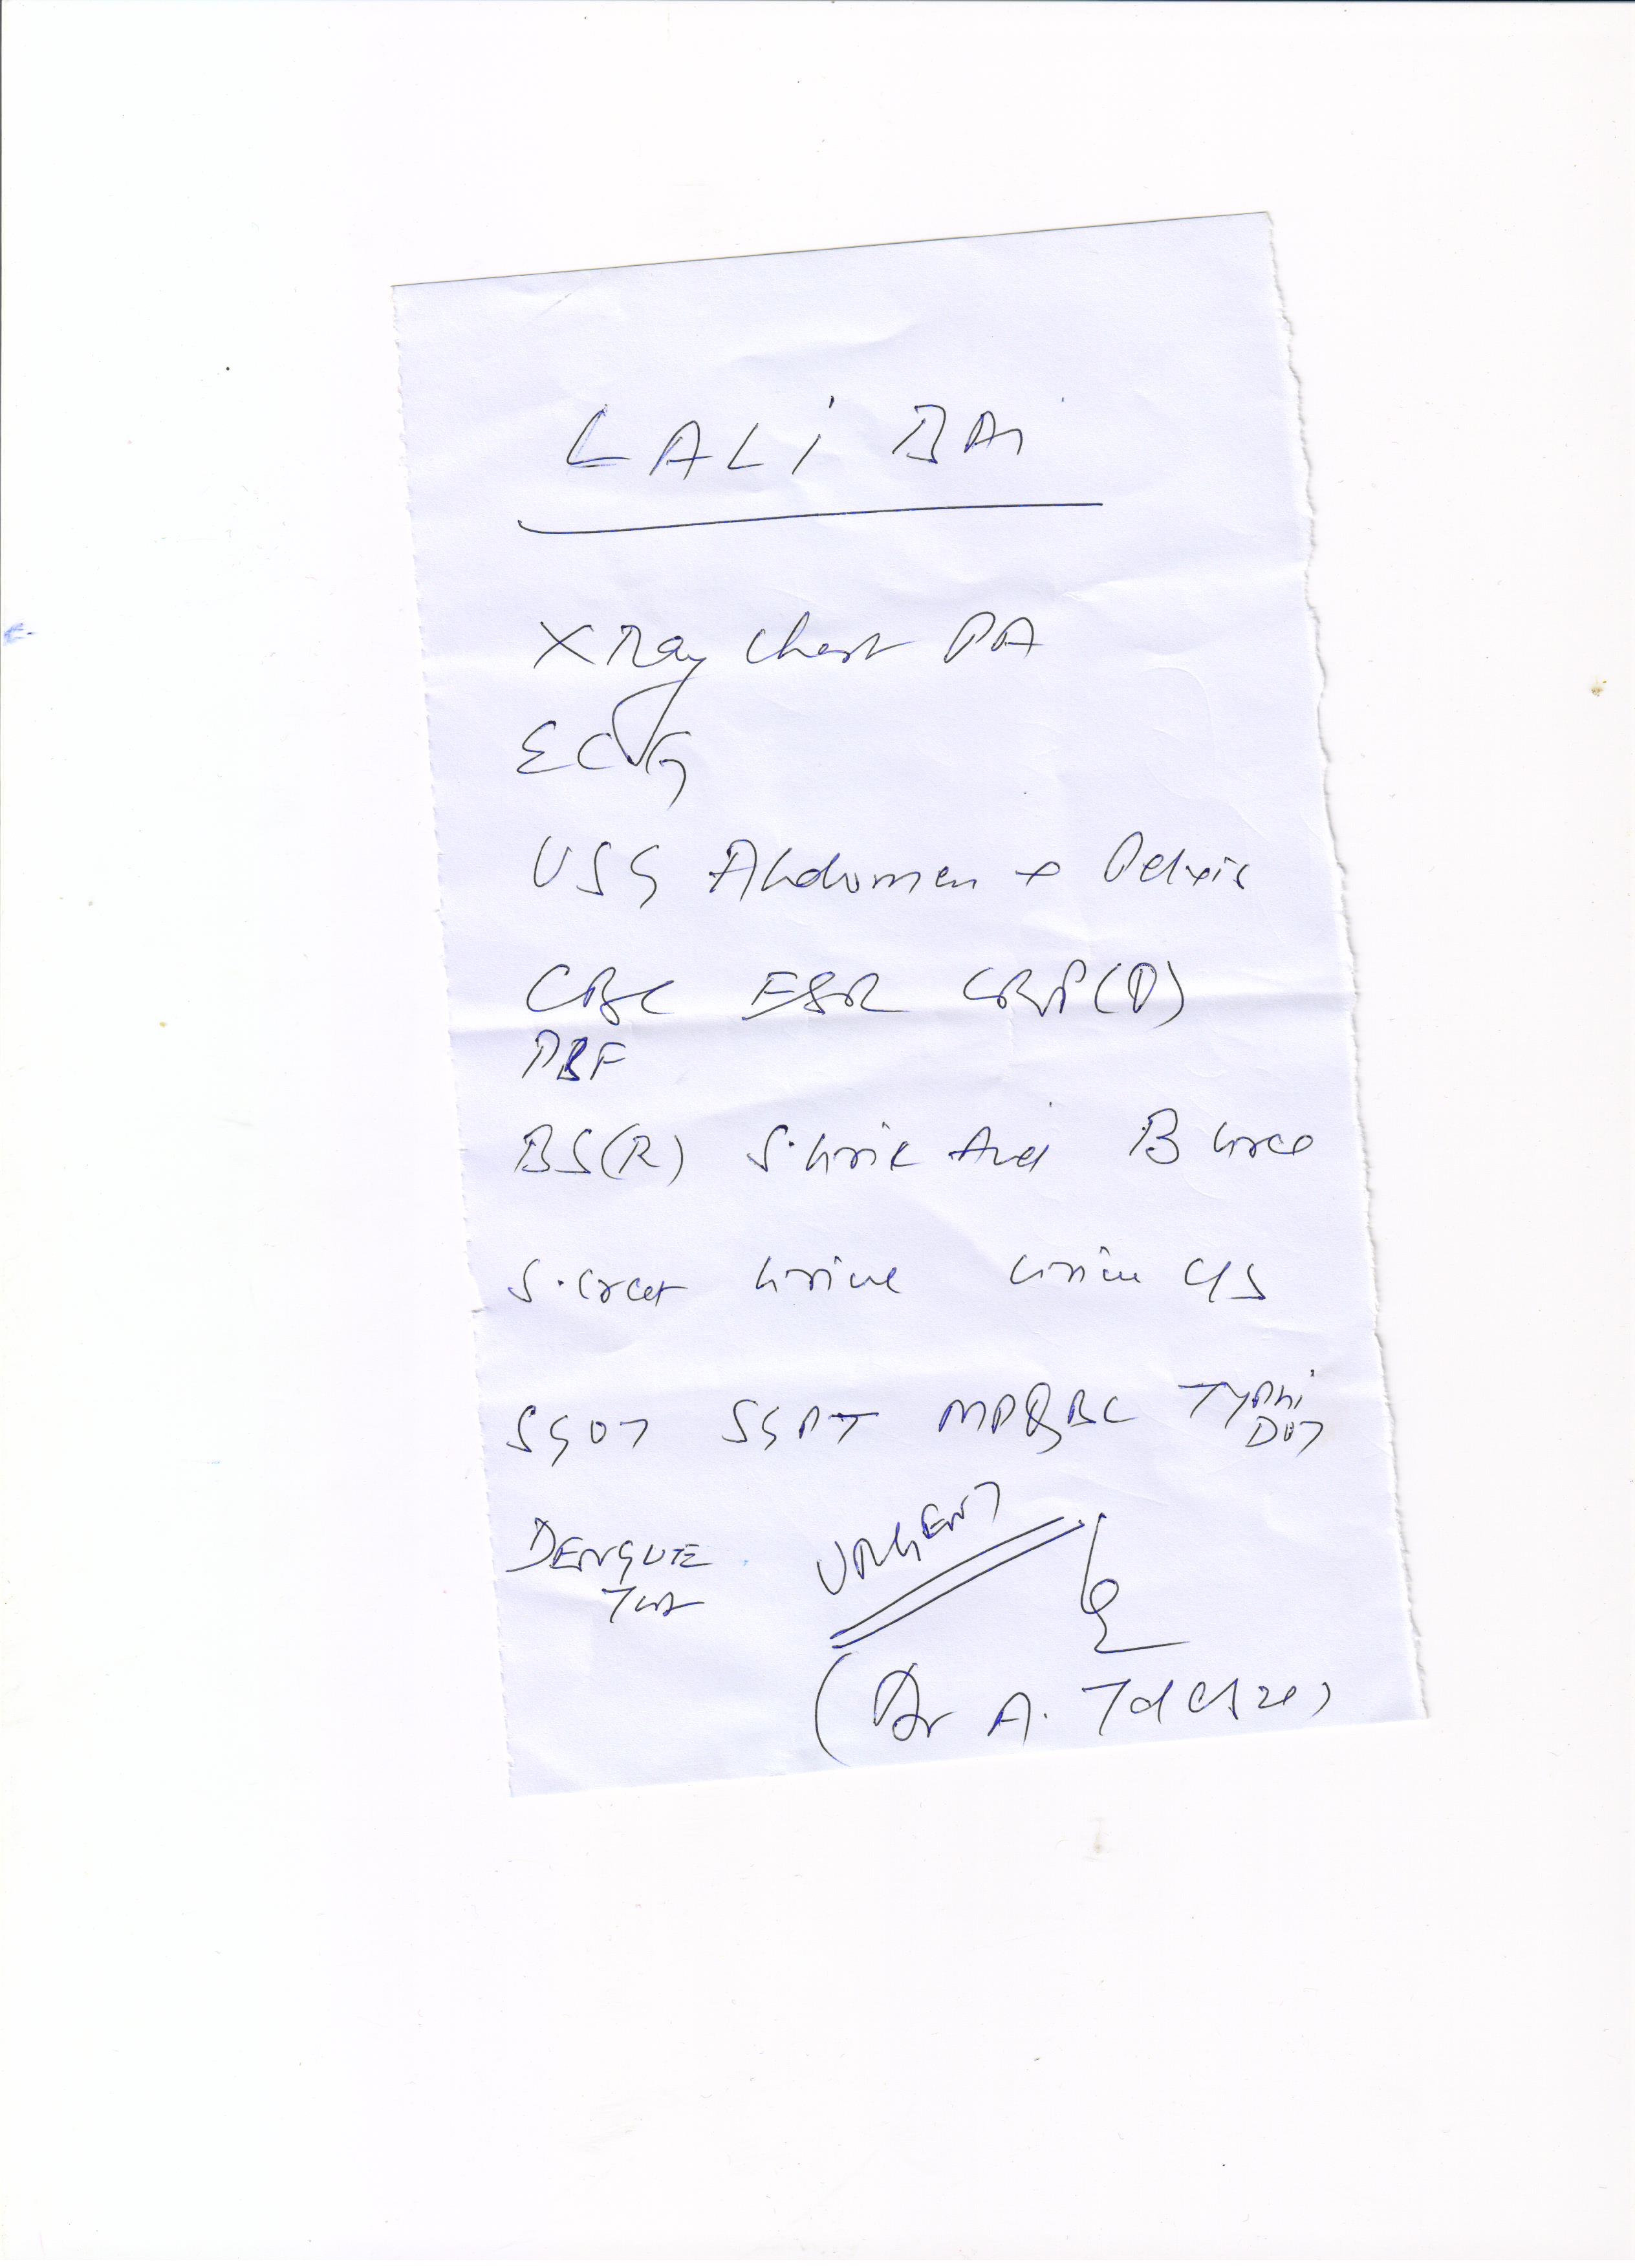 LALI BAI
X Ray Chest PA
ECG
USG Abdomen + Pelvis
CBC ESR CRP(Q)
PBF
BS(R) S. Uric Acid B Urea
S. Creat Urine Urine C/S
SGOT SGPT MPQBC TYPHI
DOT
DENGUE URGENT
Test
(Dr A.